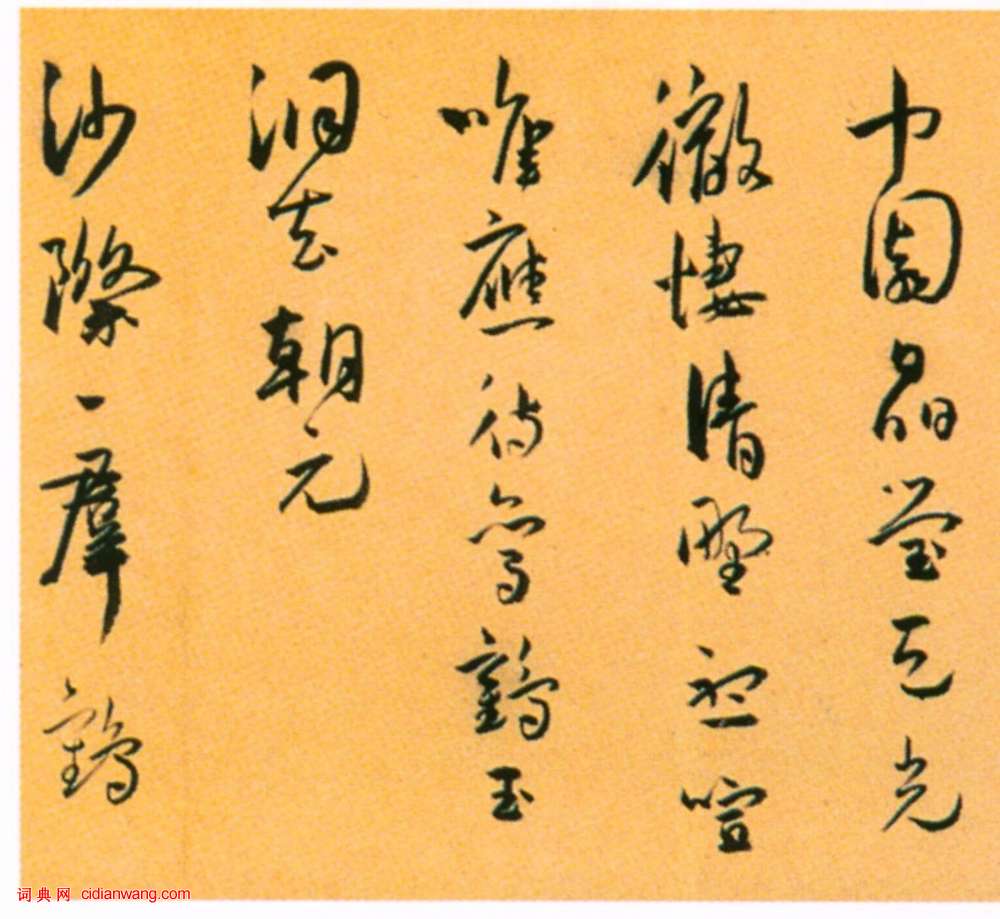 中園晶瑩互光
徹悽清野喧
唯應待鸞鶴玉
洞去朝元
沙際一羣鶴
词典网 cidianwang.com